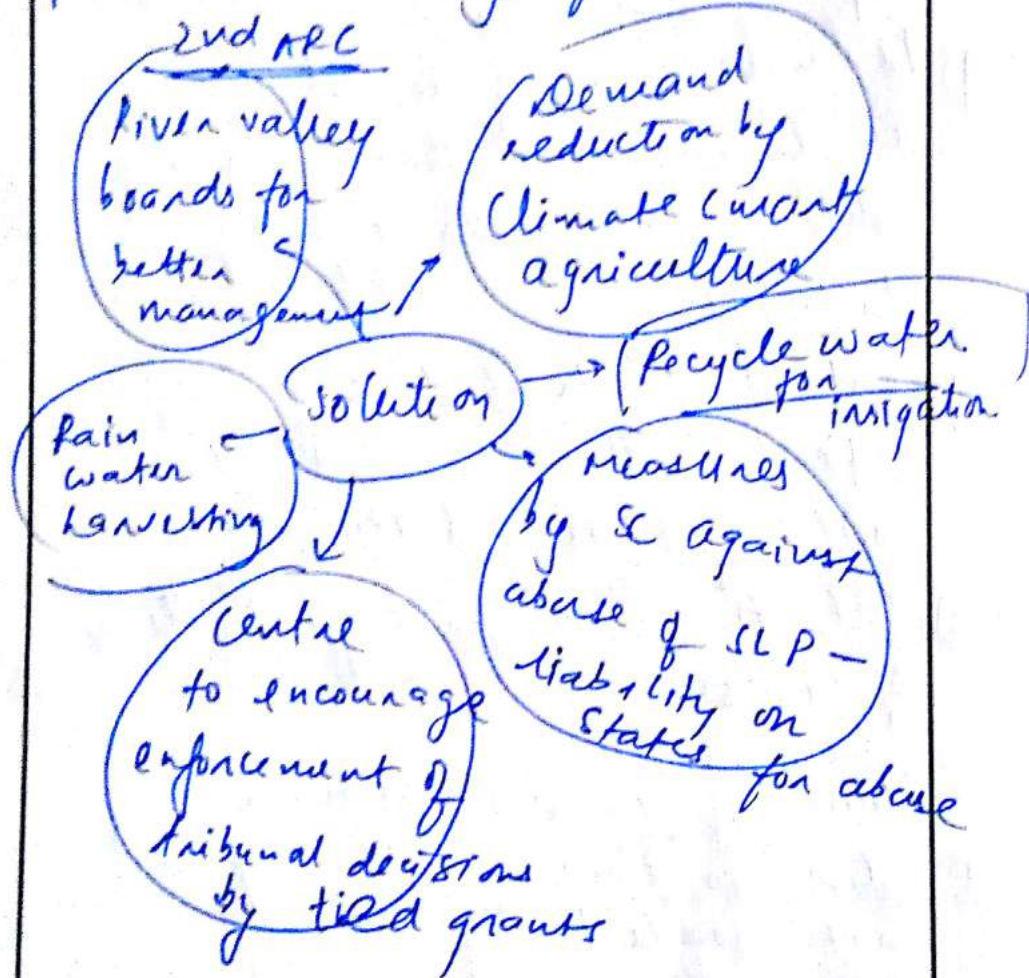 2nd ARC
River valley
boards for
better
management
Demand
reduction by
Climate smart
agriculture
Solution
Recycle water
for
irrigation
Rain
water
harvesting
Measures
by SC against
abuse of SLP –
liability on
States
for abuse
Centre
to encourage
enforcement of
tribunal decisions
by tied grants